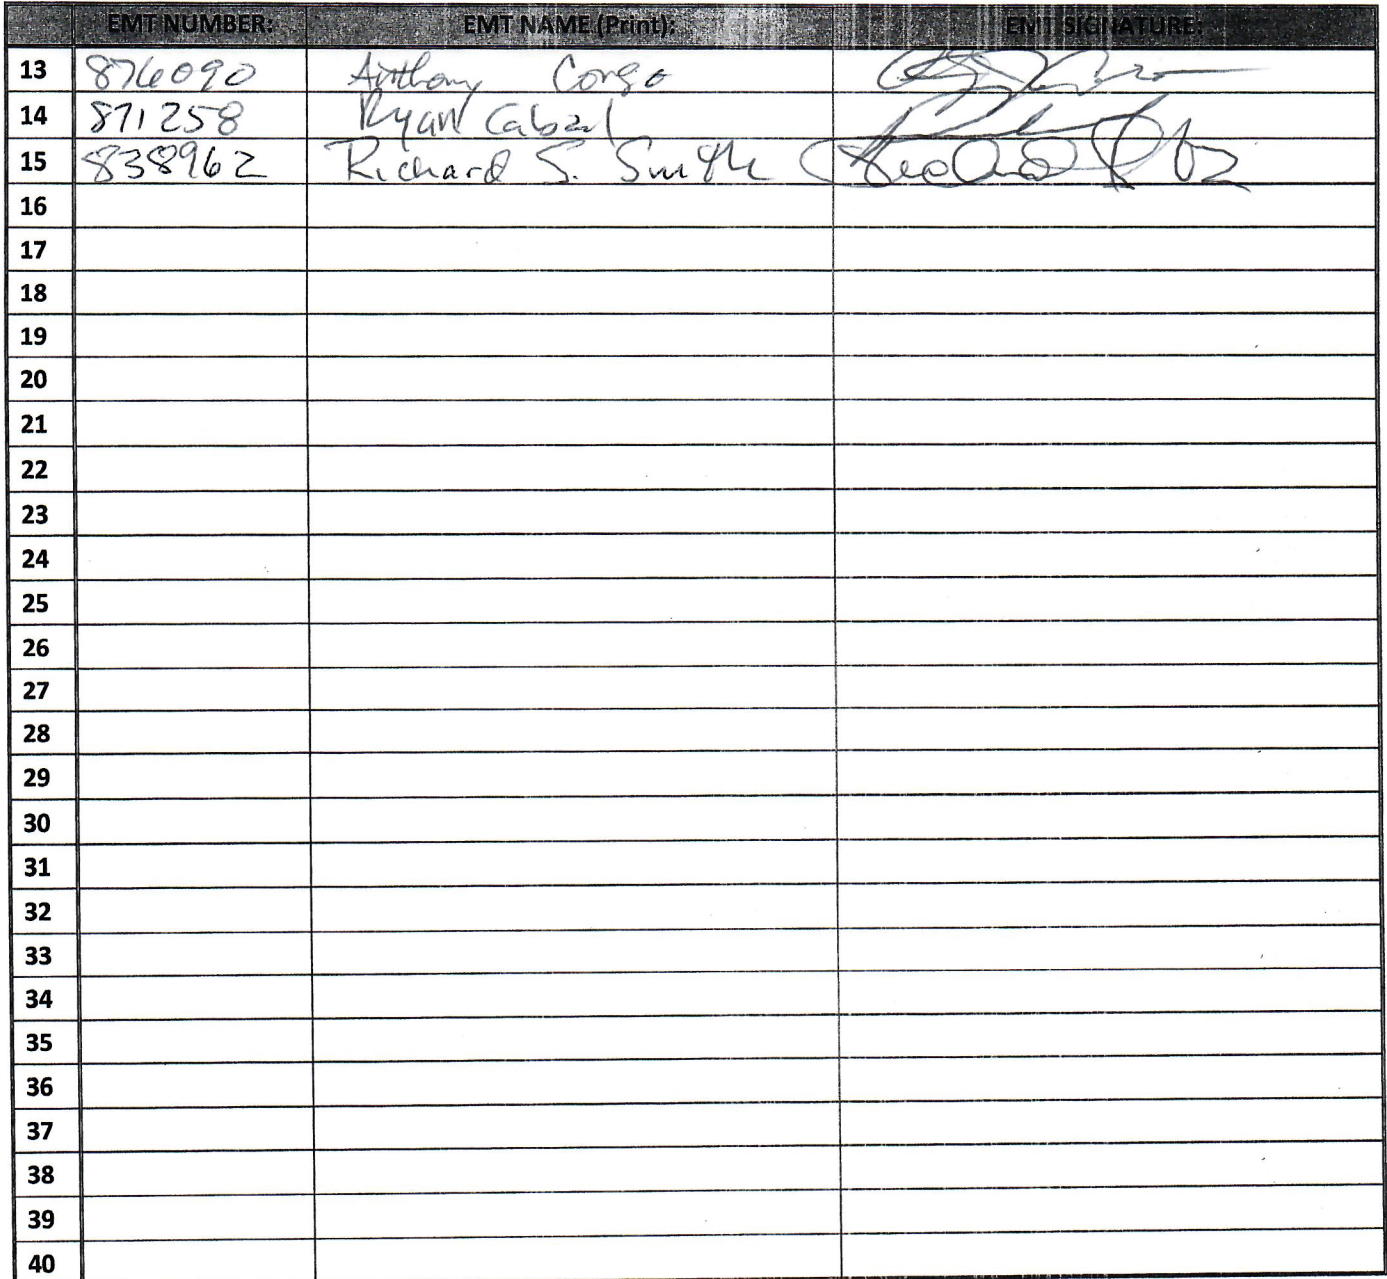 EMT NUMBER: EMT NAME (Print): EMT SIGNATURE:
13 876090 Anthony Congo
14 871258 Ryan Cabral
15 838962 Richard S. Smith
16
17
18
19
20
21
22
23
24
25
26
27
28
29
30
31
32
33
34
35
36
37
38
39
40